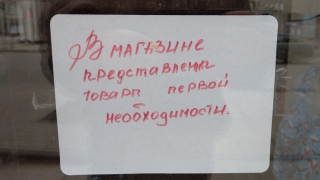 В магазине
представлены
товары первой
необходимости.